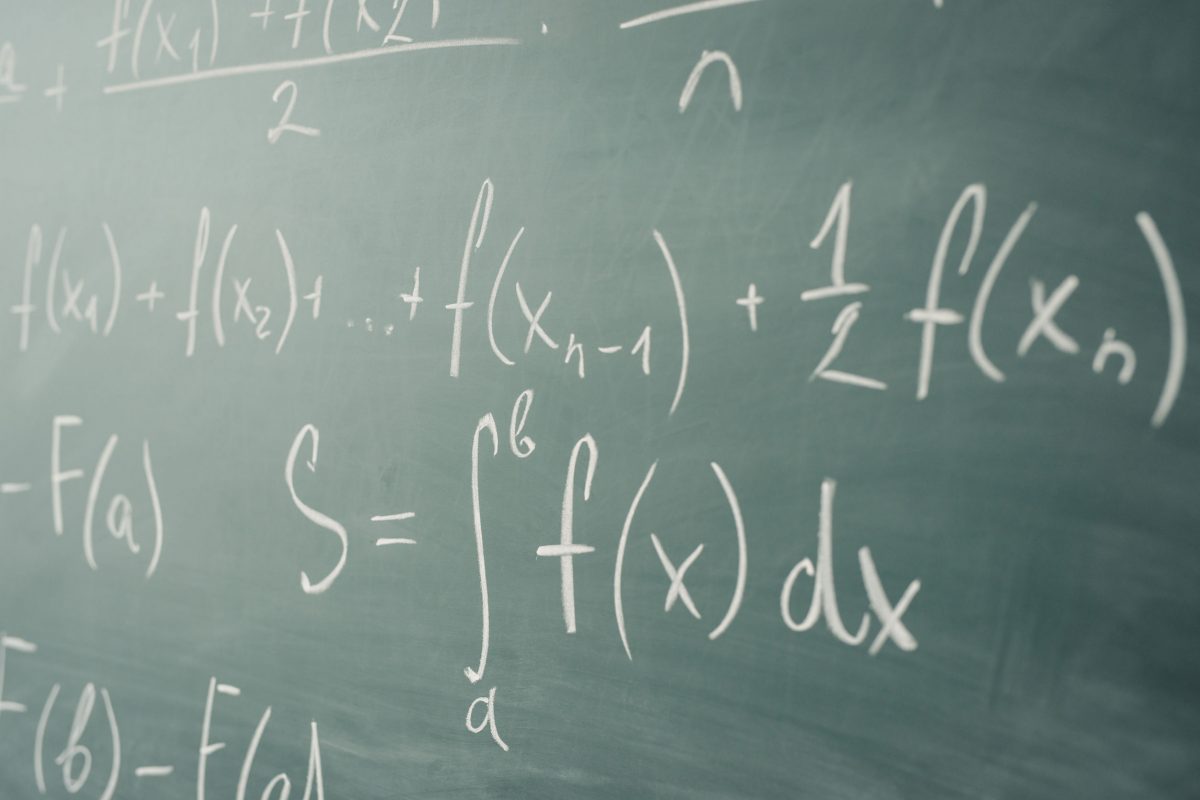 a + f(x₁) + f(x₂) / 2 . n
f(x₁) + f(x₂) + ... + f(xₙ₋₁) + 1/2 f(xₙ)
- F(a) S = ∫ₐᵇ f(x) dx
F(b) - F(a)